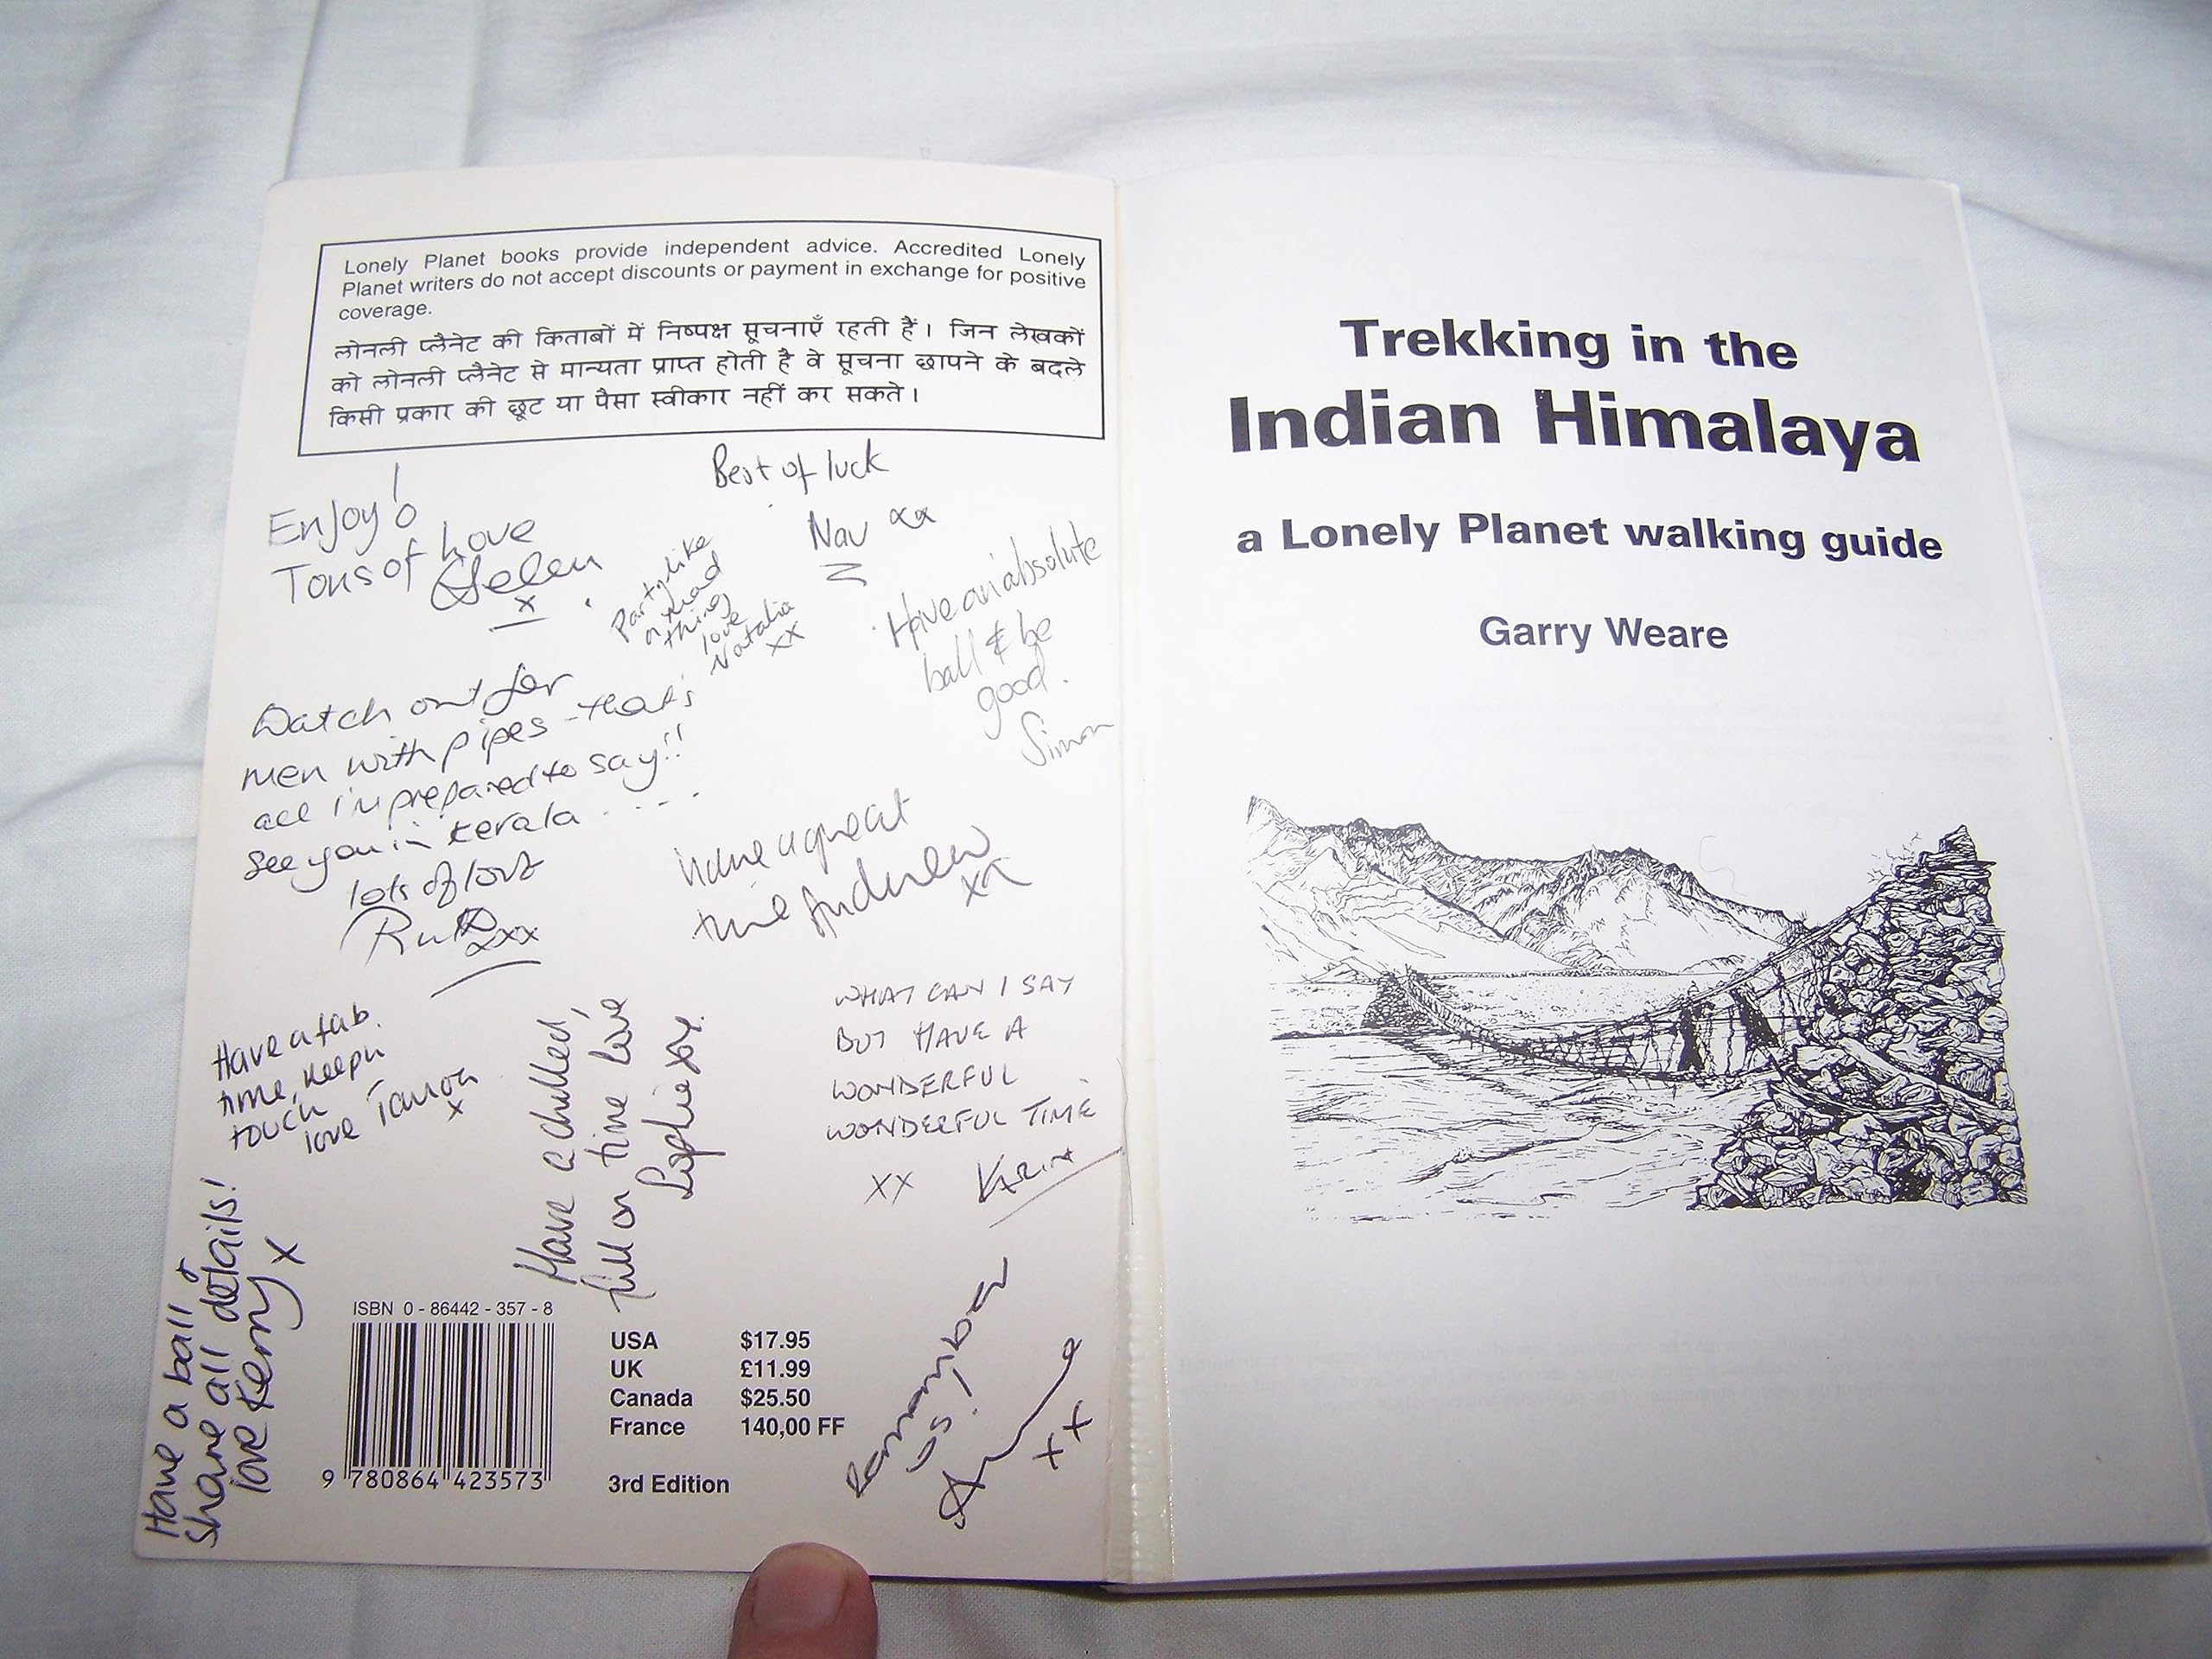 Lonely Planet books provide independent advice. Accredited Lonely
Planet writers do not accept discounts or payment in exchange for positive
coverage.
लोनली प्लैनेट की किताबों में निष्पक्ष सूचनाएँ रहती हैं। जिन लेखकों
को लोनली प्लैनेट से मान्यता प्राप्त होती है वे सूचना छापने के बदले
किसी प्रकार की छूट या पैसा स्वीकार नहीं कर सकते।
Enjoy!
Tons of Love
Helen
x
Best of luck
Nav xx
Party like
a mad
thing
love
Natalia
xx
Have an absolute
ball & be
good.
Simon
Watch out for
men with pipes - that's
all i'm prepared to say!!
See you in Kerala . . . .
lots of love
Ruth xxx
Have a great
time Andrew
xx
Have a fab
time, keep in
touch
love Tamara
x
Have a chilled,
full on time love
Sophie xx.
WHAT CAN I SAY
BUT HAVE A
WONDERFUL
WONDERFUL TIME
XX
Have a ball
Share all details!
love Kerry x
ISBN 0 - 86442 - 357 - 8
9 780864 423573
USA $17.95
UK £11.99
Canada $25.50
France 140,00 FF
3rd Edition
us!
xx
Trekking in the
Indian Himalaya
a Lonely Planet walking guide
Garry Weare